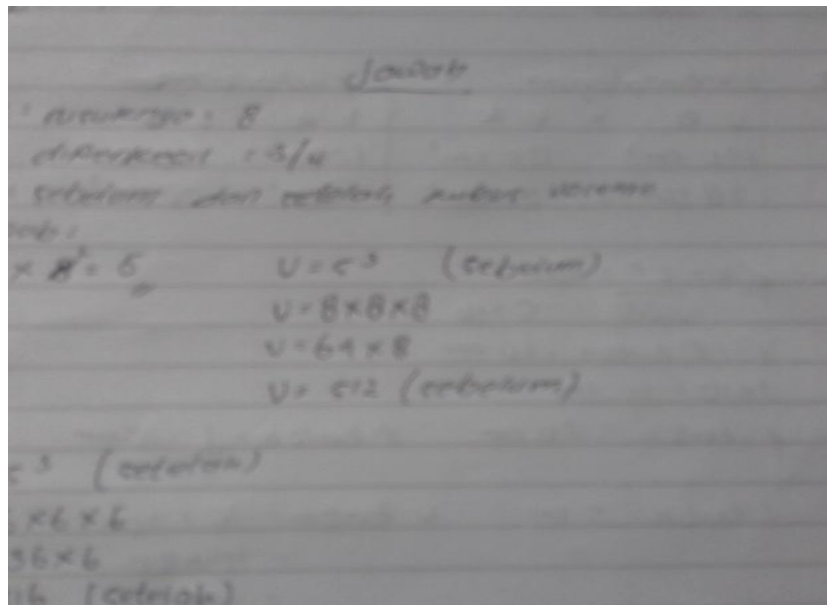 Jawab
: rusuknya : 8
diperkecil : 3/4
sebelum dan setelah, kubus volume
× 8² = 6
V = s³ (sebelum)
V = 8×8×8
V = 64×8
V = 512 (sebelum)
s³ (setelah)
×6×6
36×6
16 (setelah)